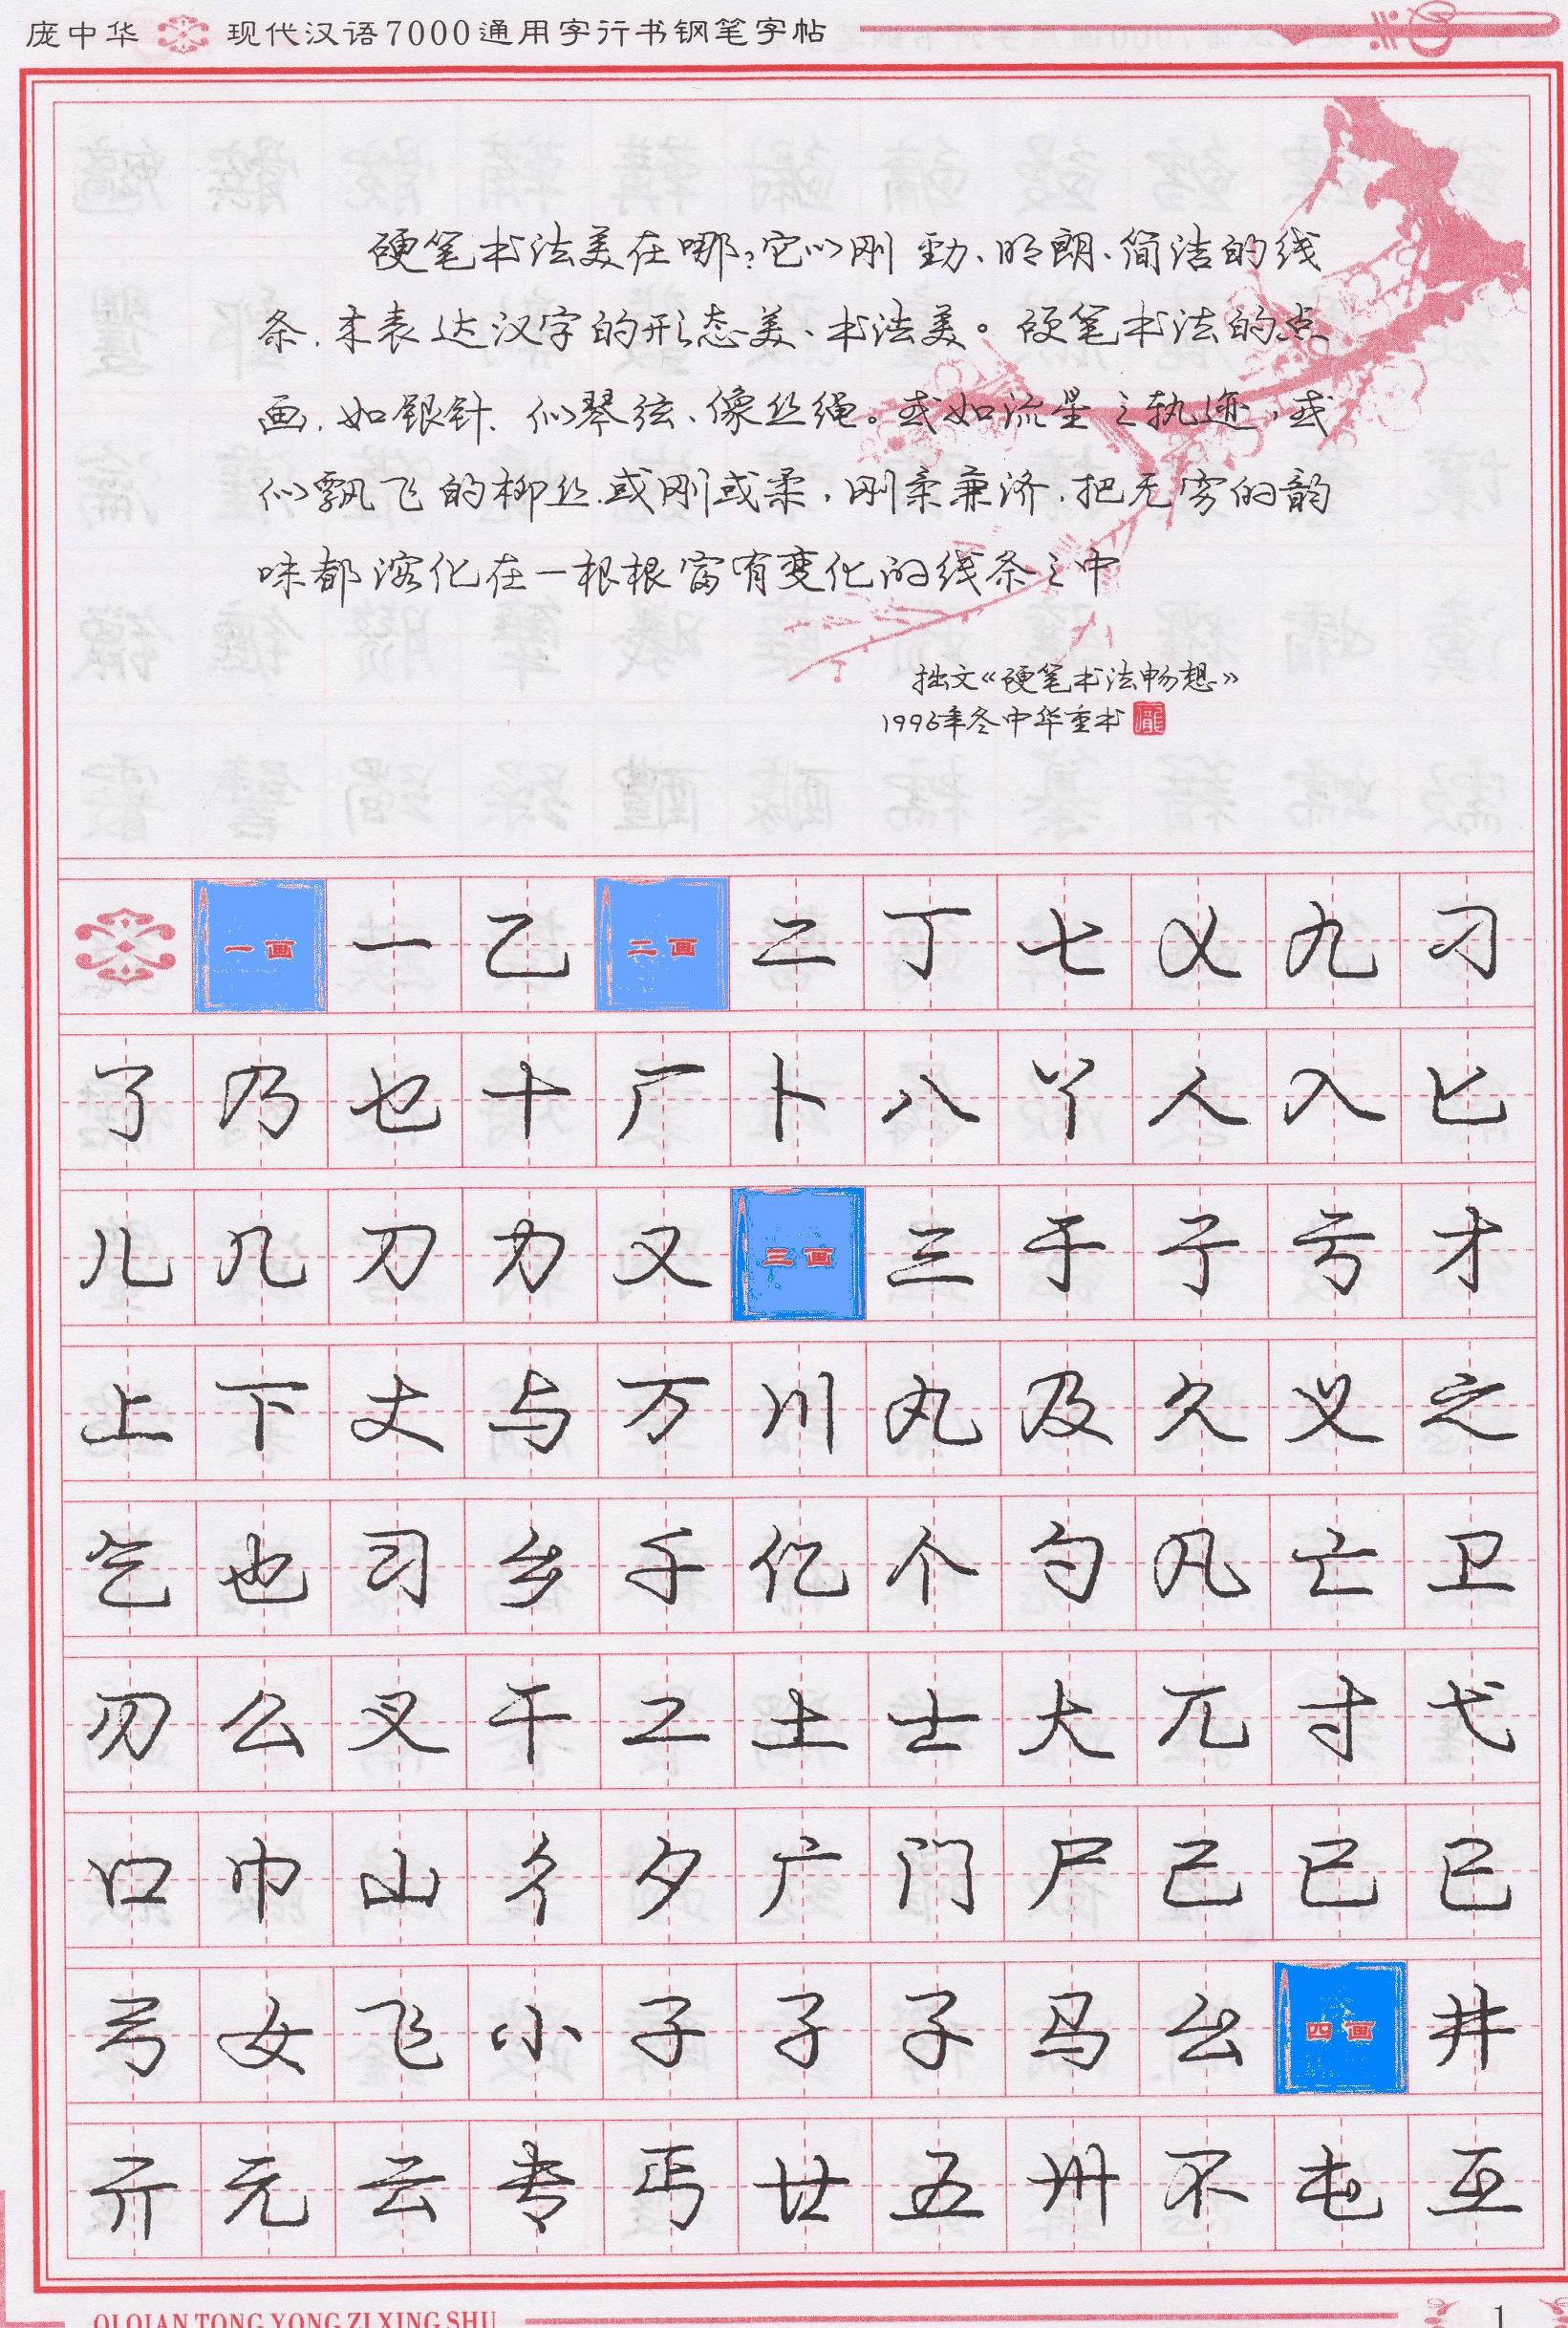 庞中华 现代汉语7000通用字行书钢笔字帖
硬笔书法美在哪?它以刚劲、明朗、简洁的线
条,来表达汉字的形态美、书法美。硬笔书法的点
画,如银针、似琴弦、像丝绳。或如流星之轨迹,或
似飘飞的柳丝,或刚或柔,刚柔兼济,把无穷的韵
味都溶化在一根根富有变化的线条之中
拙文《硬笔书法畅想》
1996年冬中华重书
一画 一 乙 二画 二 丁 七 乂 九 刁
了 乃 乜 十 厂 卜 八 丫 人 入 匕
儿 几 刀 力 又 三画 三 于 亍 亏 才
上 下 丈 与 万 川 丸 及 久 义 之
乞 也 习 乡 千 亿 个 勺 凡 亡 卫
刃 么 叉 干 工 土 士 大 兀 寸 弋
口 巾 山 彳 夕 广 门 尸 己 已 巳
弓 女 飞 小 孑 孓 子 马 幺 四画 井
亓 元 云 专 丐 廿 五 卅 不 屯 互
QI QIAN TONG YONG ZI XING SHU
1